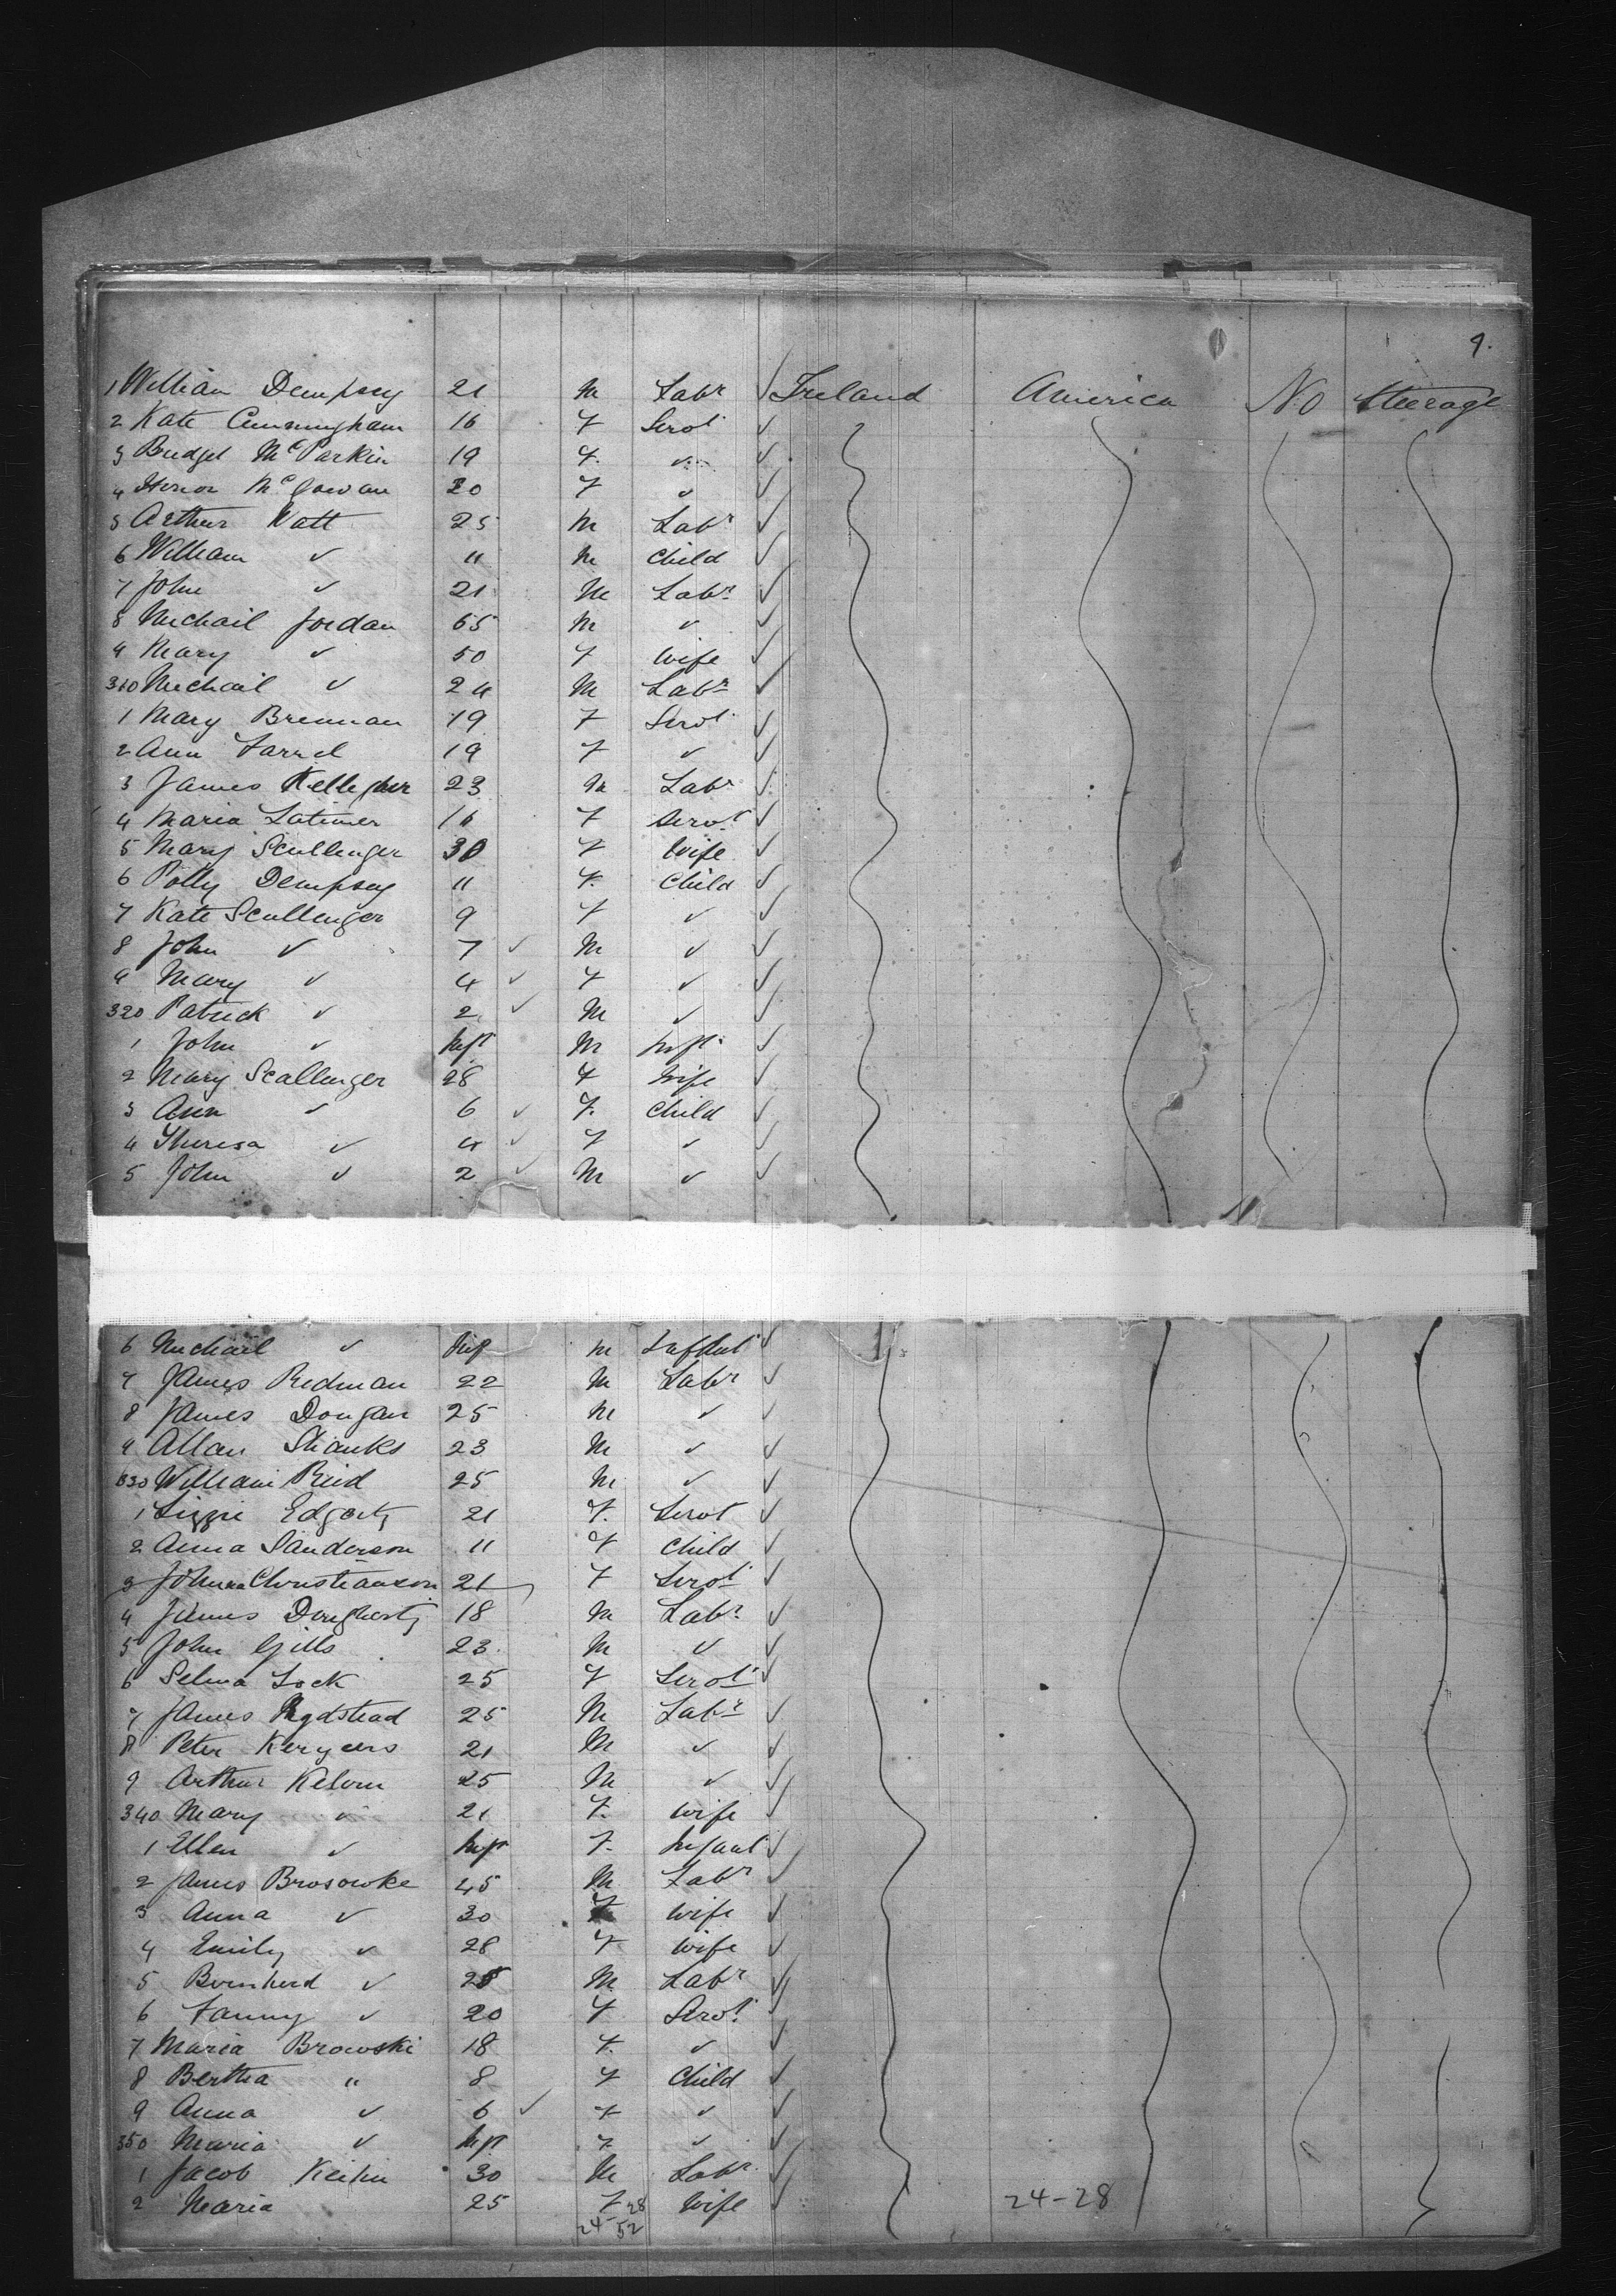 9.
1 William Dempsey 21 M Labr ✓ Ireland America No Steerage
2 Kate Cunningham 16 F Servt ✓
3 Bridget McParkin 19 F. ✓ ✓
4 Honor McGowan 20 F ✓ ✓
5 Arthur Watt 25 M Labr ✓
6 William ✓ 11 M Child ✓
7 John ✓ 21 M Labr ✓
8 Michail Jordan 65 M ✓ ✓
9 Mary ✓ 50 F Wife ✓
310 Michail ✓ 24 M Labr ✓
1 Mary Brennan 19 F Servt ✓
2 Ann Farrel 19 F ✓ ✓
3 James 23 M Labr ✓
4 Maria Latimer 16 F Servt ✓
5 Mary Scullenger 30 F Wife ✓
6 Polly Dempsey 11 F. Child ✓
7 Kate Scullenger 9 F ✓ ✓
8 John ✓ 7 ✓ M ✓ ✓
9 Mary ✓ 4 ✓ F ✓ ✓
320 Patrick ✓ 2 ✓ M ✓ ✓
1 John ✓ Inft M Inft ✓
2 Mary Scallenger 28 F Wife ✓
3 Ann ✓ 6 ✓ F. Child ✓
4 Theresa ✓ 4 ✓ F ✓ ✓
5 John ✓ 2 ✓ M ✓ ✓
6 Michail ✓ Inf M Infant ✓
7 James Redman 22 M Labr ✓
8 James Dougan 25 M ✓ ✓
9 Allan Shanks 23 M ✓ ✓
330 William Reid 25 M ✓ ✓
1 Lizzie 21 F. Servt ✓
2 Anna Sanderson 11 F Child ✓
3 Johnna Christianson 21 F Servt ✓
4 James Dougherty 18 M Labr ✓
5 John Gills 23 M ✓ ✓
6 Selma Lock 25 F Servt ✓
7 James 25 M Labr ✓
8 Peter 21 M ✓ ✓
9 Arthur Kelvin 25 M ✓ ✓
340 Mary ✓ 21 F. Wife ✓
1 Ellen ✓ Inft F. Infant ✓
2 James Brosowke 45 M Labr ✓
3 Anna ✓ 30 F Wife ✓
4 Emily ✓ 28 F Wife ✓
5 Bernherd ✓ 25 M Labr ✓
6 Fanny ✓ 20 F Servt ✓
7 Maria Browski 18 F. ✓ ✓
8 Bertha " 8 F Child ✓
9 Anna ✓ 6 ✓ F ✓ ✓
350 Maria ✓ Inft F ✓ ✓
1 Jacob 30 M Labr ✓
2 Maria 25 F Wife ✓ 24-28
24 28
52